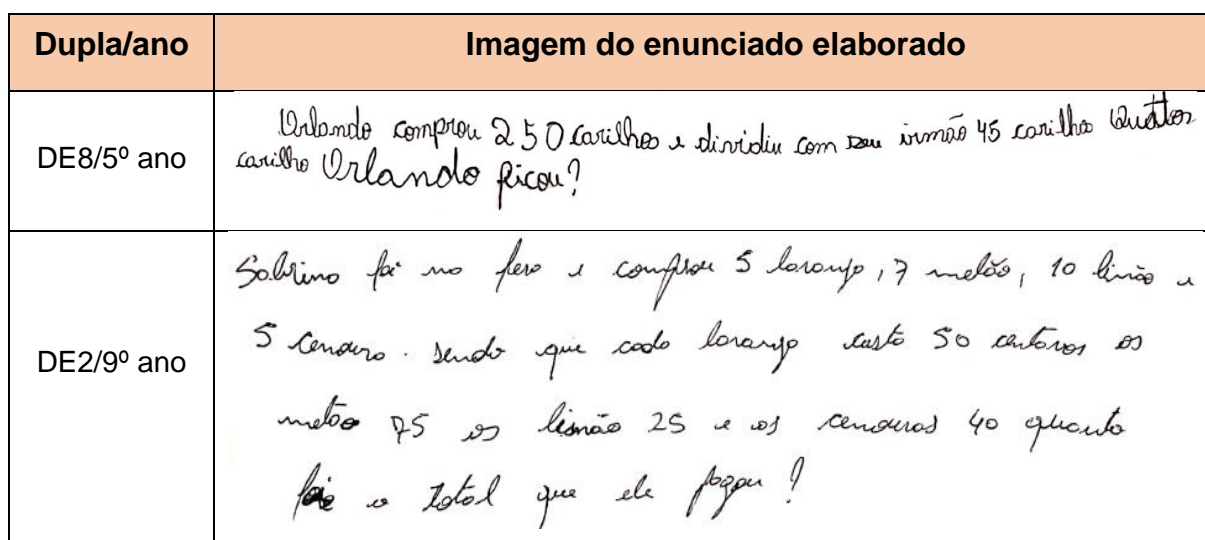 Dupla/ano Imagem do enunciado elaborado
DE8/5º ano
Orlando comprou 250 carilhos e dividiu com seu irmão 45 carilho
carilho Orlando ficou?
DE2/9º ano
Sabrina foi no fera e comprou 5 laranja, 7 melão, 10 limão e
5 cenoura. sendo que cada laranja custa 50 centavos os
melão 75 os limão 25 e as cenouras 40 quanto
foi o total que ele pagou?